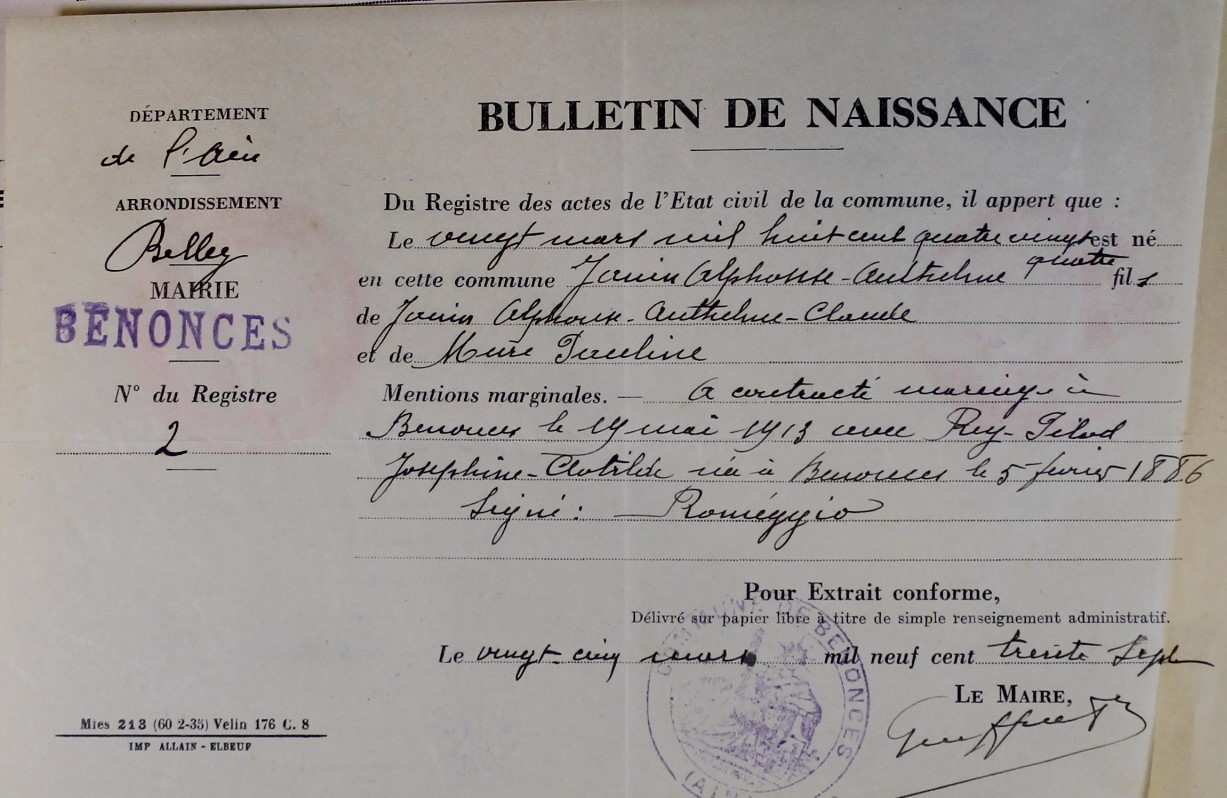 DÉPARTEMENT
de l'Ain
ARRONDISSEMENT
Belley
MAIRIE
BENONCES
N° du Registre
2
Mies 213 (60 2-35) Velin 176 C. 8
IMP ALLAIN - ELBEUF
BULLETIN DE NAISSANCE
Du Registre des actes de l'Etat civil de la commune, il appert que :
Le vingt mars mil huit cent quatre vingt est né
quatre
en cette commune Janin Alphonse-Anthelme fils
de Janin Alphonse-Anthelme-Claude
et de Mure Pauline
Mentions marginales. — A contracté mariage à
Benonces le 19 mai 1913 avec Rey-Pilod
Josephine-Clotilde née à Benonces le 5 fevrier 1886
Signé : Roméggio
Pour Extrait conforme,
Délivré sur papier libre à titre de simple renseignement administratif.
Le vingt-cinq mars mil neuf cent trente Sept
LE MAIRE,
COMMUNE DE BENONCES
(AIN)